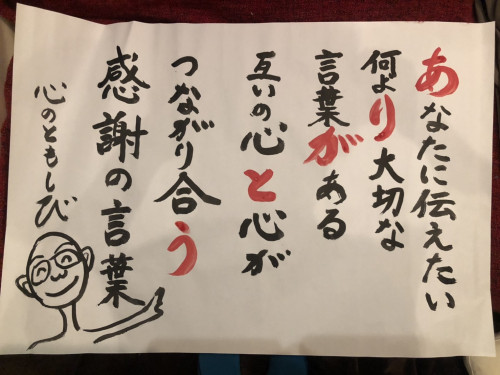 あなたに伝えたい
何より大切な
言葉がある
互いの心と心が
つながり合う
感謝の言葉
心のともしび